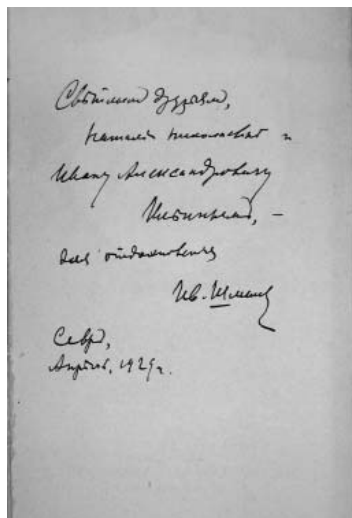 Свѣтлымъ друзьям,
Наталiи Николаевнѣ и
Ивану Александровичу
Ильинымъ, —
для отдохновенiя
Ив. Шмелев
Севр,
Апрѣль, 1929 г.